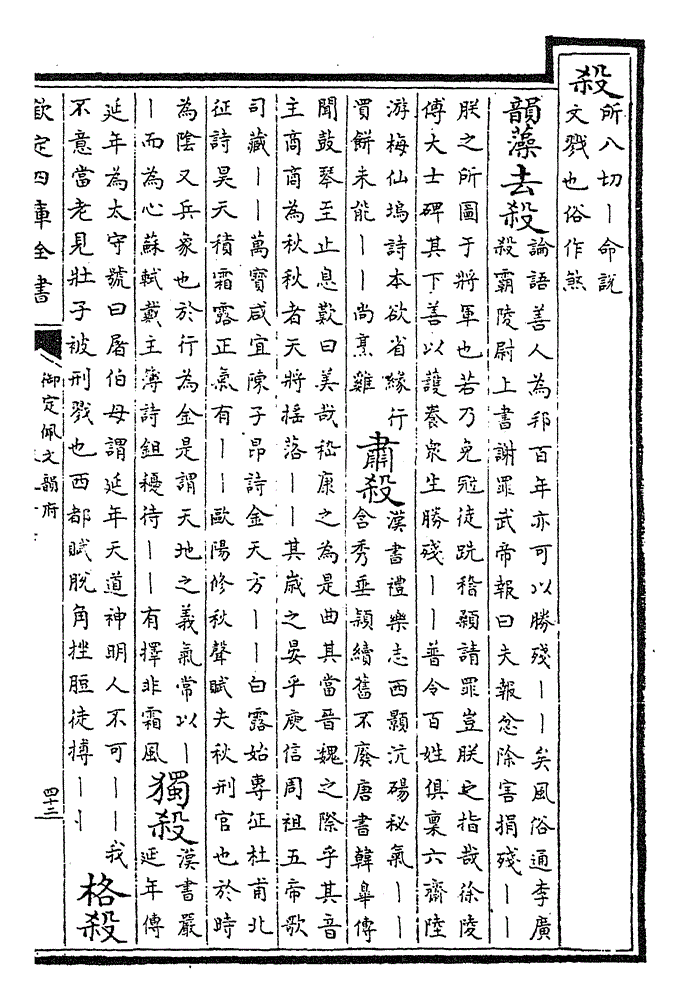 殺
所八切丨命說
文戮也俗作煞
韻藻
去殺
論語善人為邦百年亦可以勝殘丨丨矣風俗通李廣
殺霸陵尉上書謝罪武帝報曰夫報忿除害捐殘丨丨
朕之所圖于將軍也若乃免冠徒跣稽顙請罪豈朕之指哉徐陵
傅大士碑其下善以護養衆生勝殘丨丨普令百姓俱稟六齋陸
游梅仙塢詩本欲省緣行
買餅未能丨丨尚烹雞
肅殺
漢書禮樂志西顥沆碭秘氣丨丨
含秀垂頴續舊不廢唐書韓臯傳
聞鼓琴至止息歎曰美哉嵇康之為是曲其當晉魏之際乎其音
主商商為秋秋者天將揺落丨丨其歲之晏乎庾信周祖五帝歌
司藏丨丨萬寳咸宜陳子昂詩金天方丨丨白露始專征杜甫北
征詩昊天積霜露正氣有丨丨歐陽修秋聲賦夫秋刑官也於時
為陰又兵象也於行為金是謂天地之義氣常以丨
丨而為心蘇軾戴主簿詩鉏耰待丨丨有擇非霜風
獨殺
漢書嚴
延年傳
延年為太守號曰屠伯母謂延年天道神明人不可丨丨我
不意當老見壯子被刑戮也西都賦脫角挫脰徒搏丨丨
格殺
欽定四庫全書
御定佩文韻府
四十三